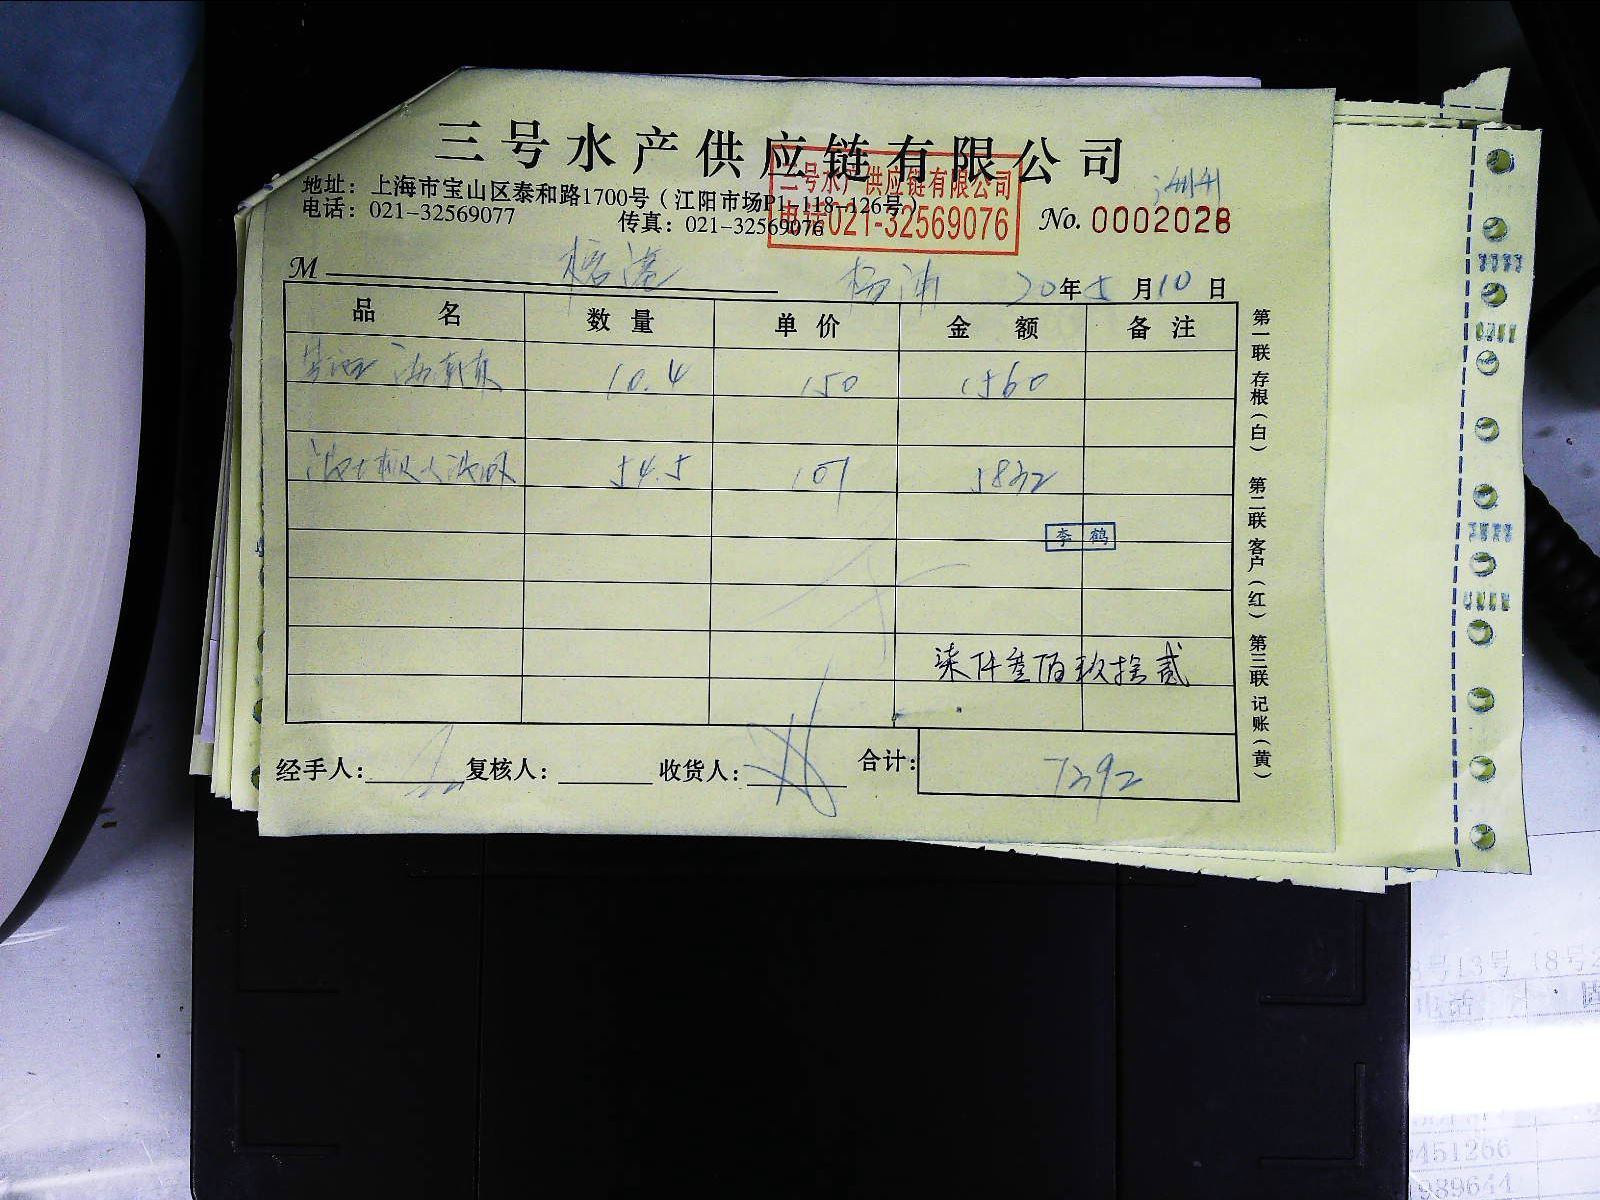 三号水产供应链有限公司
地址：上海市宝山区泰和路1700号（江阳市场P1-118-126号）
电话：021-32569077 传真：021-32569076
三号水产供应链有限公司
电话021-32569076
No. 0002028
M 榕港 杨浦 20年5月10日
品名 数量 单价 金额 备注
10.4 150 1560
54.5 107 5832
李鹤
柒仟叁佰玖拾贰
经手人： 复核人： 收货人： 合计： 7392
第一联 存根（白） 第二联 客户（红） 第三联 记账（黄）
8号13号（8号2
电话
451266
989644